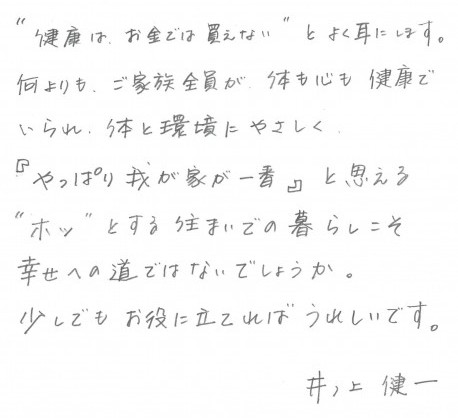 “健康は、お金では買えない”とよく耳にします。
何よりも、ご家族全員が、体も心も健康で
いられ、体と環境にやさしく、
『やっぱり我が家が一番』と思える
“ホッ”とする住まいでの暮らしこそ
幸せへの道ではないでしょうか。
少しでもお役に立てればうれしいです。
井ノ上 健一